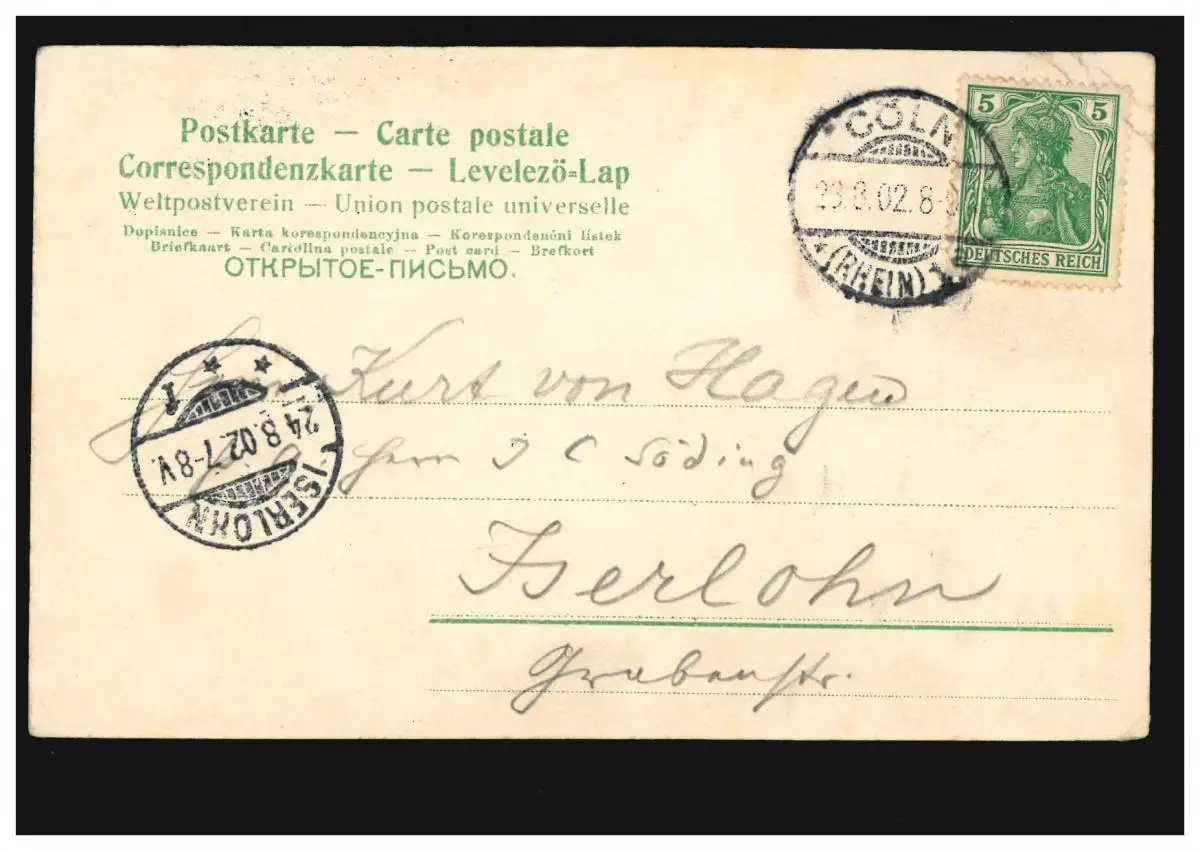 Postkarte — Carte postale
Correspondenzkarte — Levelező-Lap
Weltpostverein — Union postale universelle
Dopisnice — Karta korespondencyjna — Korespondenčni lístek
Briefkaart — Cartolina postale — Post card — Brefkort
ОТКРЫТОЕ-ПИСЬМО.
CÖLN
23.8.02.8-
(RHEIN) 1
5 5
DEUTSCHES REICH
1
24.8.02.7-8V.
ISERLOHN
Herrn Kurt von Hagen
Herrn J C Söding
Iserlohn
Grabenstr.